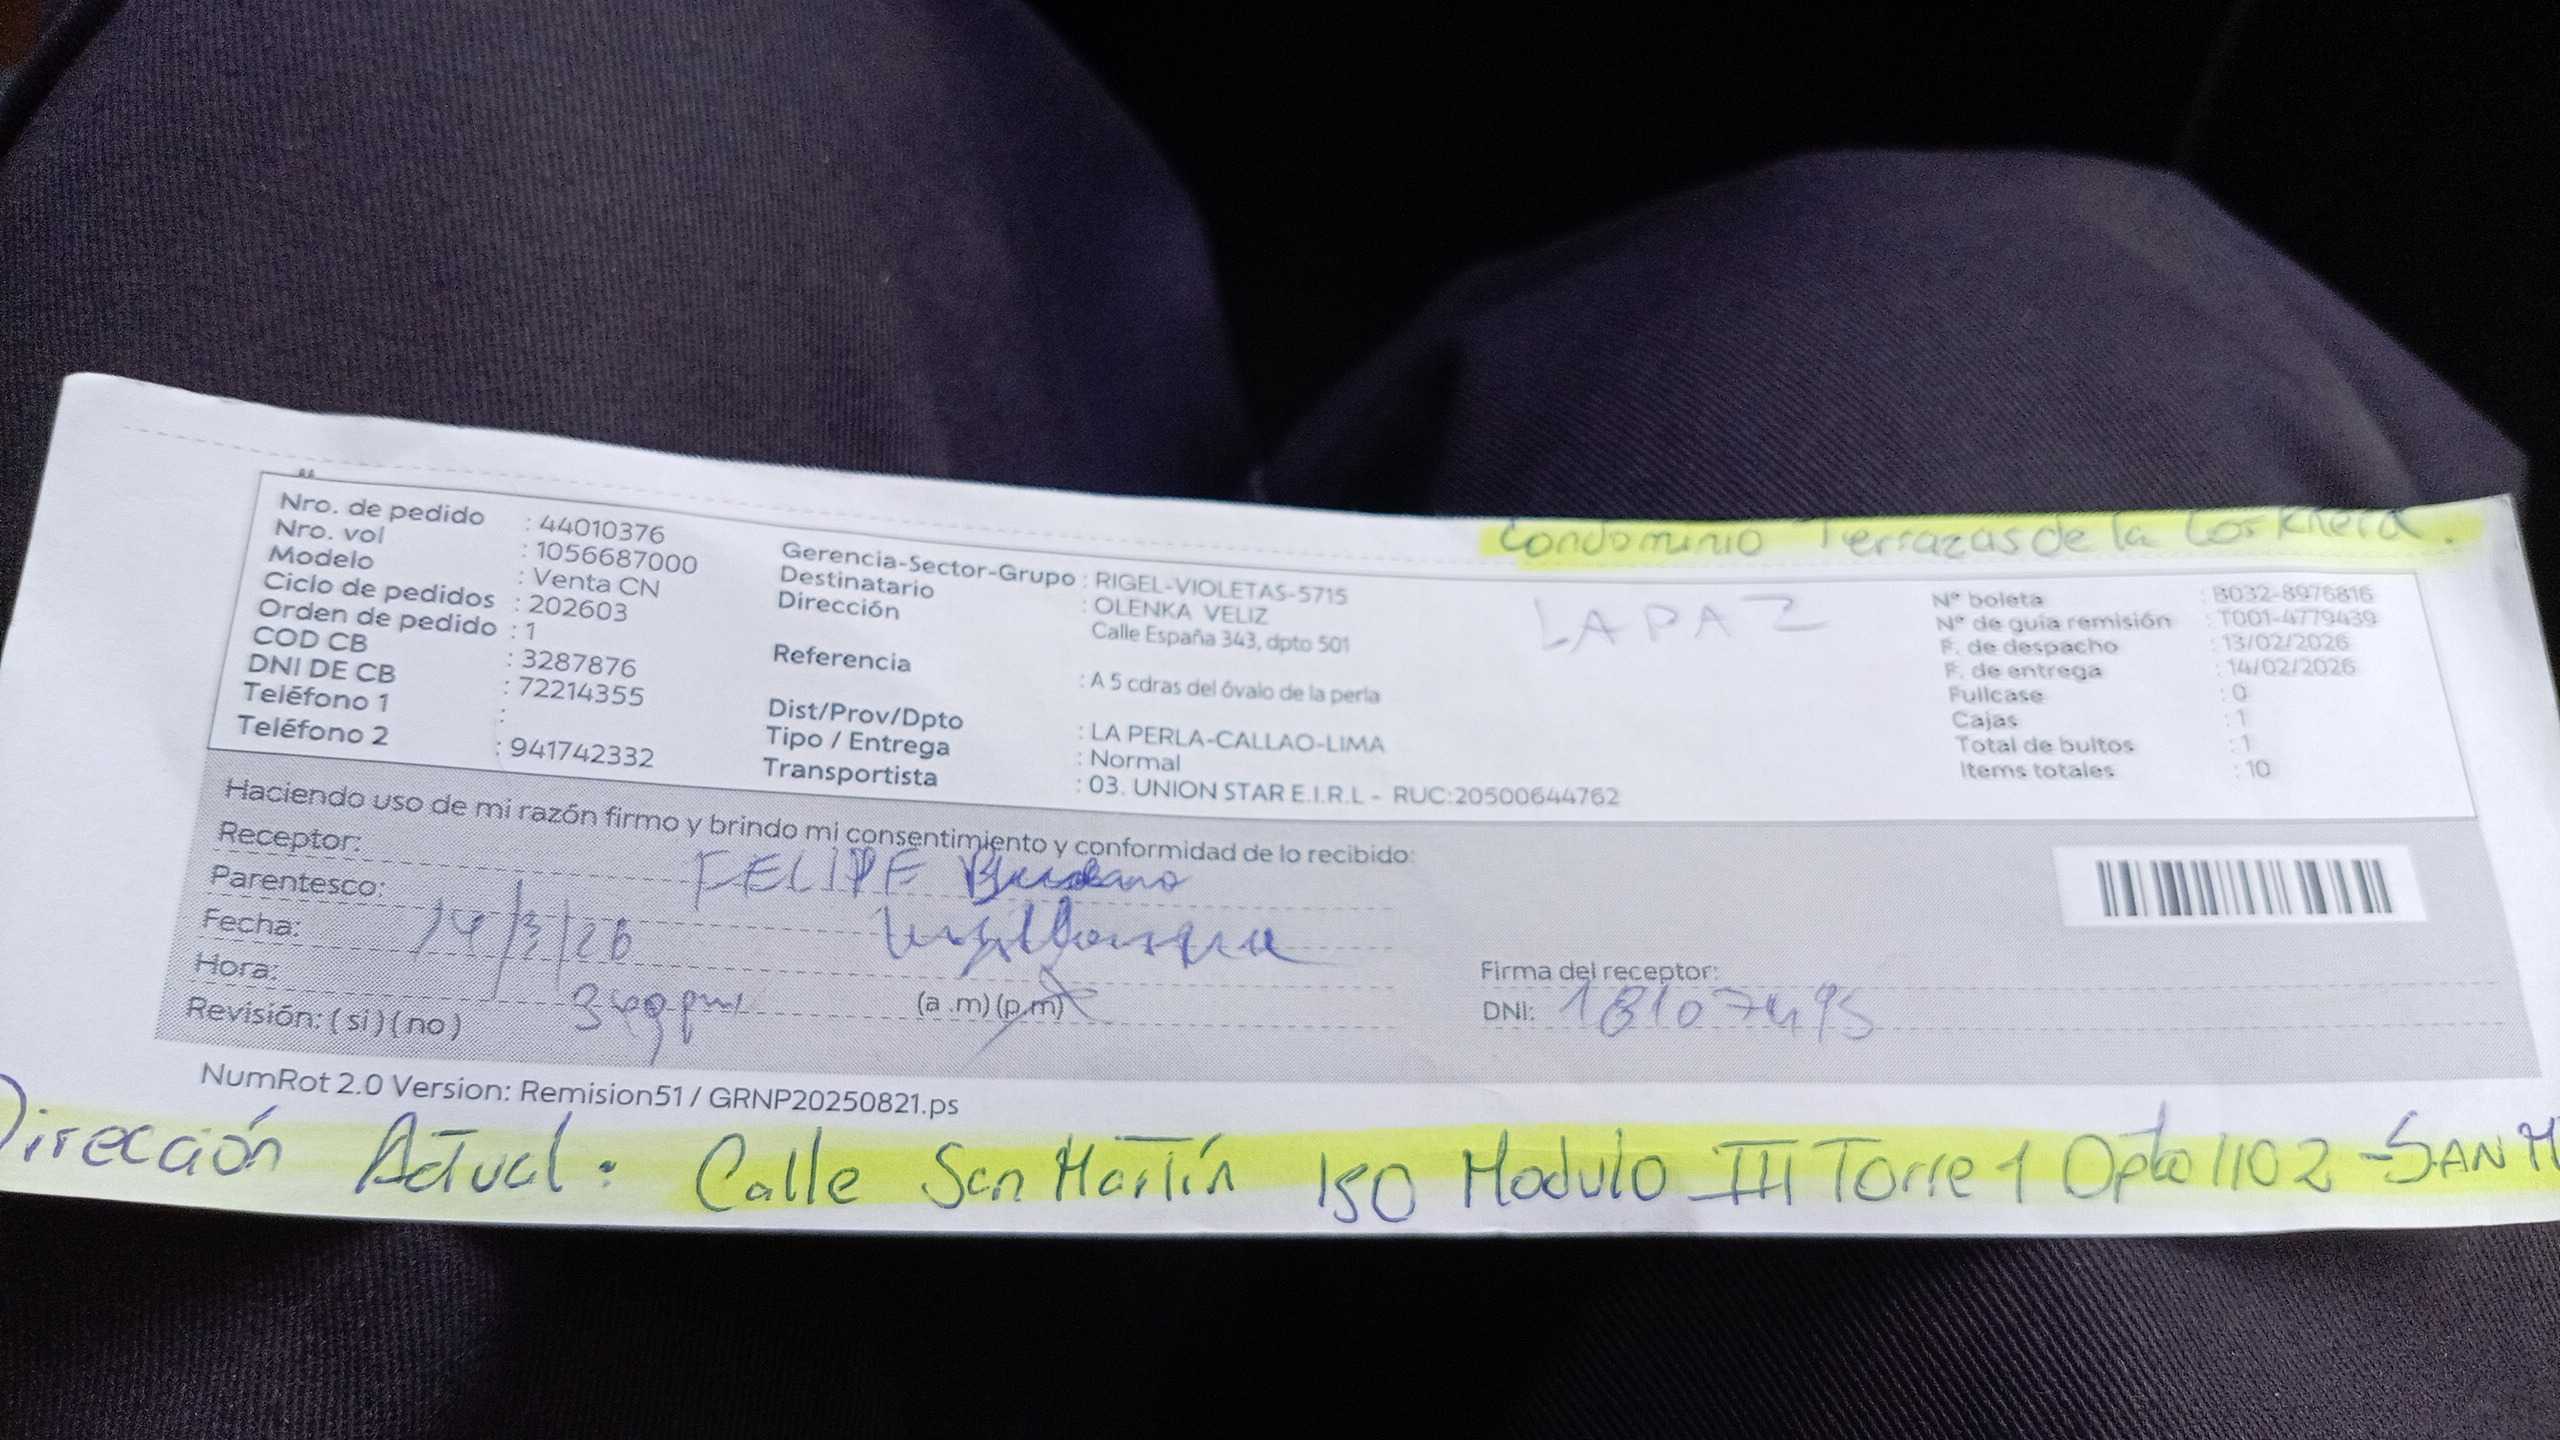 Condominio Terrazas de la Costanera.
Nro. de pedido : 44010376
Nro. vol : 1056687000
Modelo : Venta CN
Ciclo de pedidos : 202603
Orden de pedido : 1
COD CB : 3287876
DNI DE CB : 72214355
Teléfono 1 :
Teléfono 2 : 941742332
Gerencia-Sector-Grupo : RIGEL-VIOLETAS-5715
Destinatario : OLENKA VELIZ
Dirección : Calle España 343, dpto 501
Referencia : A 5 cdras del óvalo de la perla
Dist/Prov/Dpto : LA PERLA-CALLAO-LIMA
Tipo / Entrega : Normal
Transportista : 03. UNION STAR E.I.R.L - RUC:20500644762
LA PAZ
Nº boleta : B032-8976816
Nº de guía remisión : T001-4779439
F. de despacho : 13/02/2026
F. de entrega : 14/02/2026
Fullcase : 0
Cajas : 1
Total de bultos : 1
Items totales : 10
Haciendo uso de mi razón firmo y brindo mi consentimiento y conformidad de lo recibido:
Receptor: FELIPE
Parentesco:
Fecha: 14/ /26
Hora: (a .m) (p.m)
Revisión: ( si ) ( no )
Firma del receptor:
DNI: 18107495
NumRot 2.0 Version: Remision51 / GRNP20250821.ps
Dirección Actual: Calle San Martín 150 Modulo III Torre 1 Dpto 1102 - SAN M